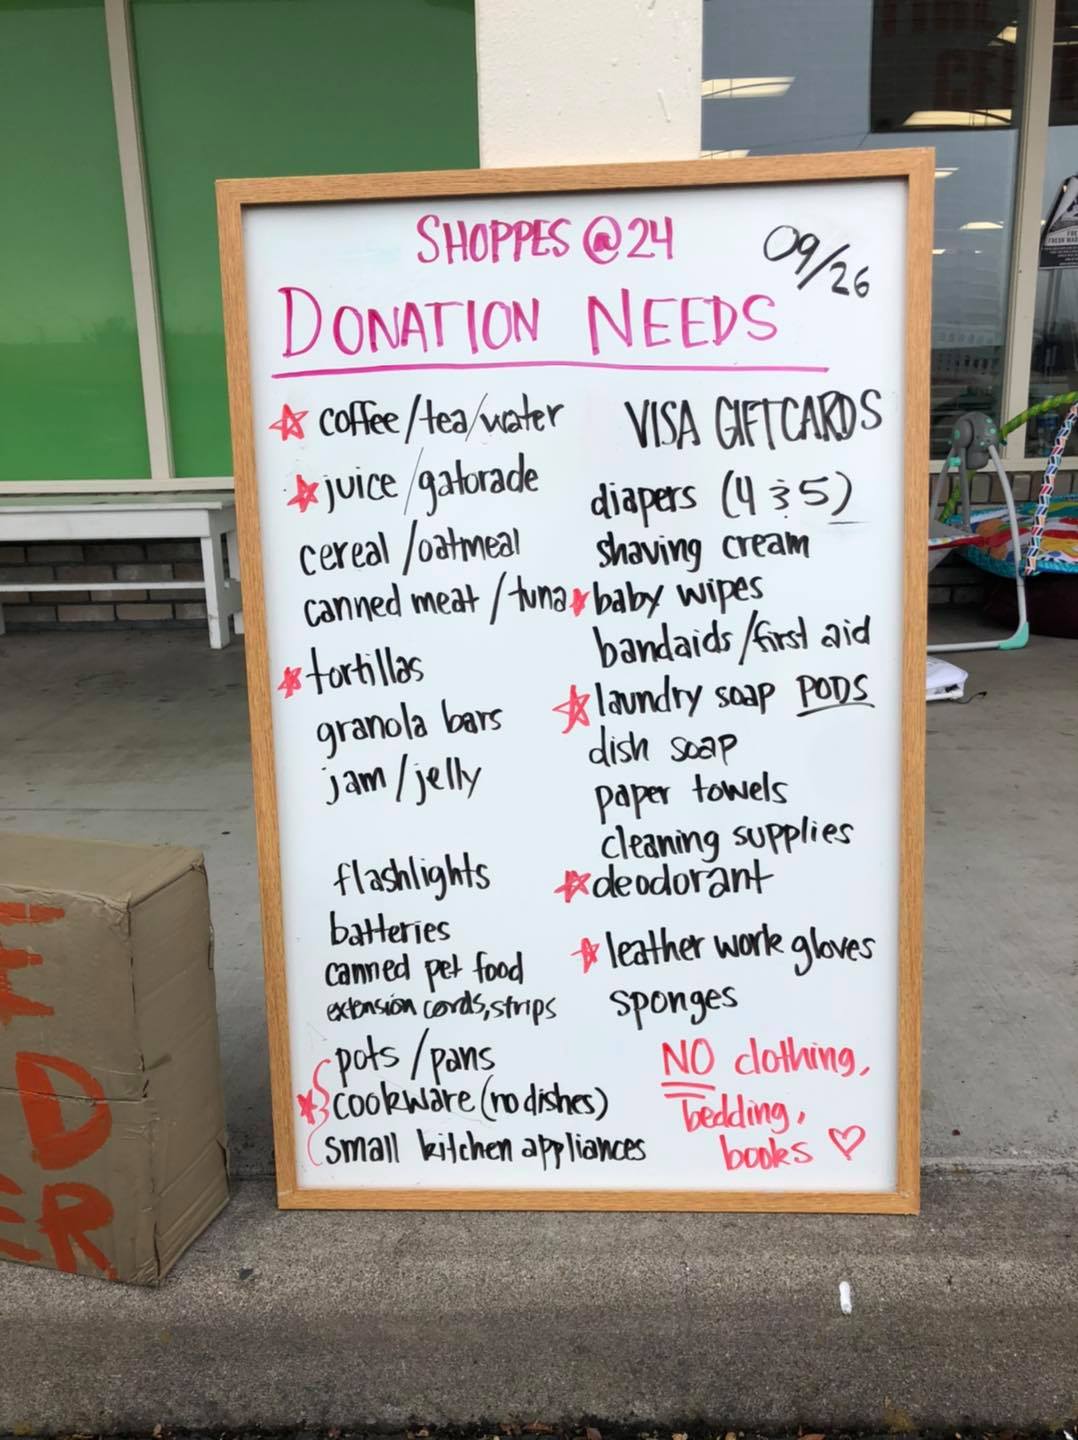 SHOPPES @ 24
09/26
DONATION NEEDS
☆ coffee/tea/water
☆ juice/gatorade
cereal/oatmeal
canned meat/tuna
☆ tortillas
granola bars
jam/jelly
flashlights
batteries
canned pet food
extension cords, strips
pots/pans
☆ cookware (no dishes)
small kitchen appliances
VISA GIFTCARDS
diapers (4 & 5)
shaving cream
☆ baby wipes
bandaids/first aid
☆ laundry soap PODS
dish soap
paper towels
cleaning supplies
☆ deodorant
☆ leather work gloves
sponges
NO clothing,
bedding,
books ♡
D
ER